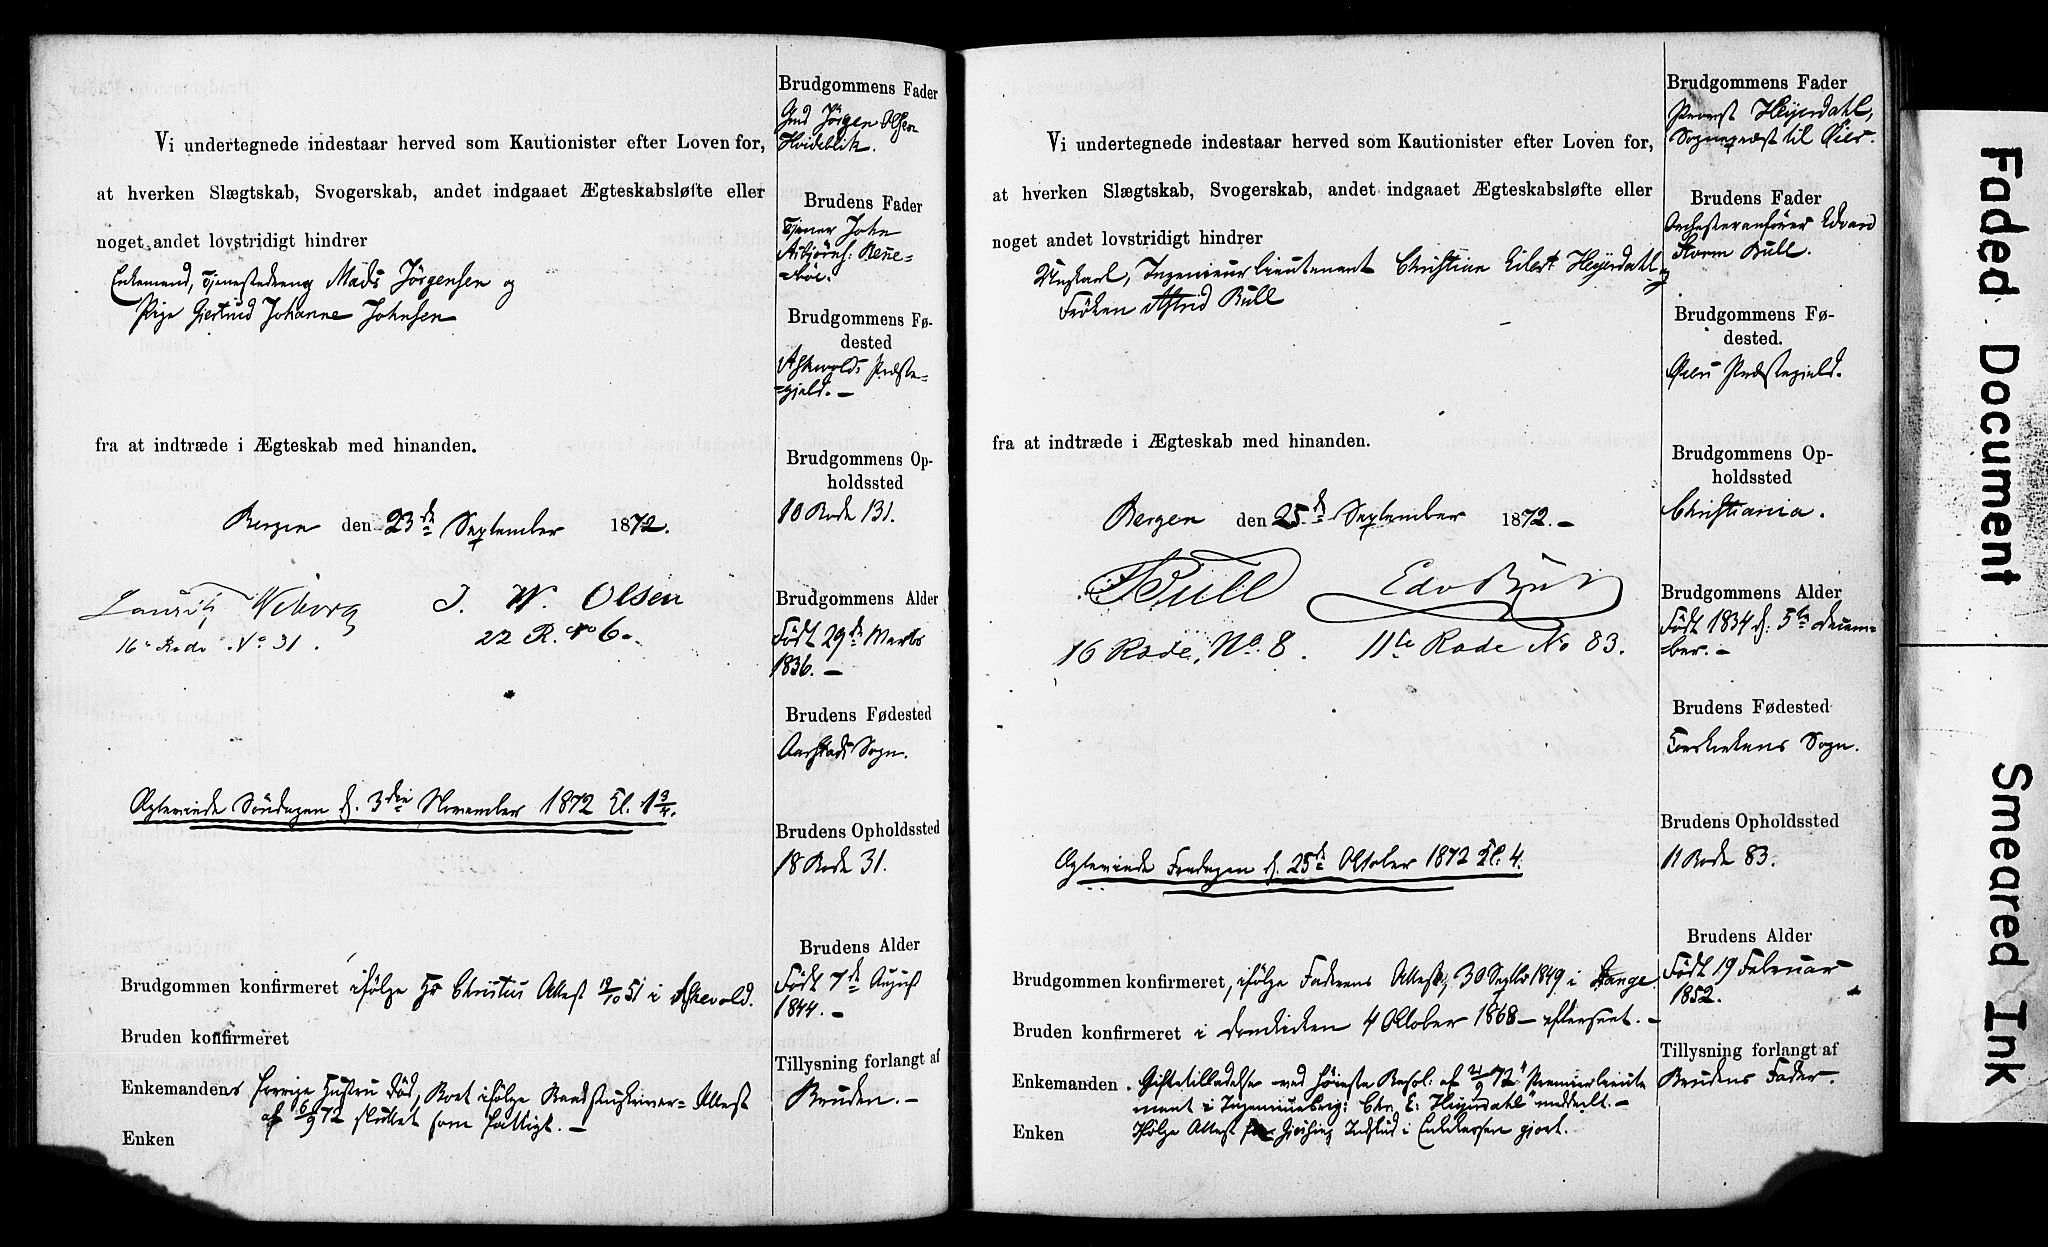 Vi undertegnede indestaar herved som Kautionister efter Loven for,
at hverken Slægtskab, Svogerskab, andet indgaaet Ægteskabsløfte eller
noget andet lovstridigt hindrer
Enkemand, Tjenestedreng Mads Jörgensen og
Pige Gjertrud Johanne Johnsen
fra at indtræde i Ægteskab med hinanden.
Bergen den 23de September 1872.
Lauritz Wiborg J. W. Olsen
16de Rode No 31. 22 R. No 6.
Ægteviede Söndagen d. 3die November 1872 Kl. 1 3/4.
Brudgommen konfirmeret ifölge Hr Attest 12/10 51 i Askevold.
Bruden konfirmeret
Enkemandens forrige Hustru död, Boet ifölge Attest
af 6/9 72 sluttet som fattigt. —
Enken
Brudgommens Fader
Jörgen Olsen
Hvideblik.
Brudens Fader
Tjener John
Brudgommens Fø-
dested
Askevolds Præste-
gjeld. —
Brudgommens Op-
holdssted
10 Rode 131.
Brudgommens Alder
Födt 29de Marts
1836. —
Brudens Fødested
Aarstads Sogn.
Brudens Opholdssted
18 Rode 31.
Brudens Alder
Födt 7de August
1844. —
Tillysning forlangt af
Bruden. —
Vi undertegnede indestaar herved som Kautionister efter Loven for,
at hverken Slægtskab, Svogerskab, andet indgaaet Ægteskabsløfte eller
noget andet lovstridigt hindrer
Ungkarl, Ingenieurlieutenant Christian Eilert Heyerdahl og
Fröken Astrid Bull
fra at indtræde i Ægteskab med hinanden.
Bergen den 25de September 1872. —
Bull Edv Bull
16 Rode, No. 8. 11te Rode No 83.
Ægteviede Fredagen d. 25de Oktober 1872 Kl. 4.
Brudgommen konfirmeret, ifölge Faderens Attest, 30 Septbr 1849 i Vange
Bruden konfirmeret i Domkirken 4 Oktober 1868 — efterseet. —
Enkemanden. Giftetilladelse ved höieste Resol: af 21/9 72 "Premierlieute
nant i Ingenieurbrig: Chr. E. Heyerdahl" meddelt. —
Enken Ifölge Attest Indskud i Enkekassen gjort.
Brudgommens Fader
Provst Heyerdahl,
Sognepræst til Öier.
Brudens Fader
Orchesteranförer Edvard
Storm Bull.
Brudgommens Fø-
dested.
Öiers Præstegjeld.
Brudgommens Op-
holdssted
Christiania.
Brudgommens Alder
Födt 1834 d. 5te Decem-
ber. —
Brudens Fødested
Korskirkens Sogn.
Brudens Opholdssted
11 Rode 83.
Brudens Alder
Födt 19 Februar
1852.
Tillysning forlangt af
Brudens Fader.
Faded Document
Smeared Ink